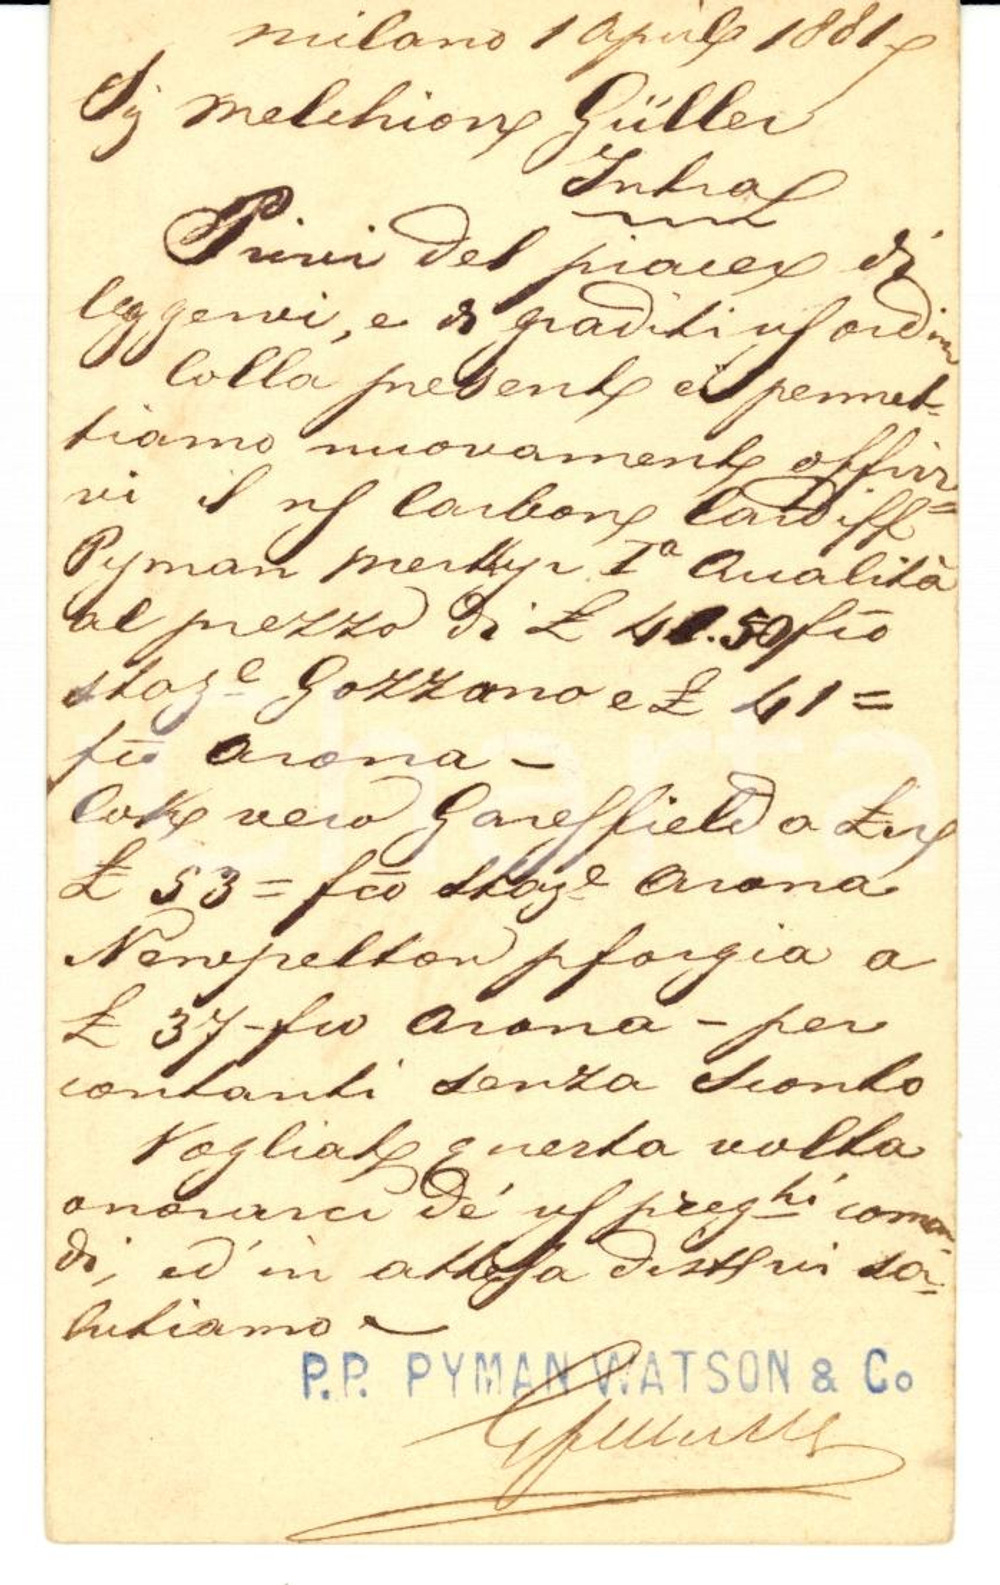 Milano 1 Aprile 1881
Sg Melchiore Güller
Intra
Privi del piacere di
leggervi, e di graditi vs ordini
Colla presente ci permet-
tiamo nuovamente offrir=
vi il ns Carbone Cardiff
Pyman Merthyr Iª Qualità
al prezzo di £ 41.50 fco
staz.e Gozzano e £ 41=
fco Arona -
Coke vero Garesffield a
£ 53= fco staz.e Arona
Newpelton p forgia a
£ 37- fco Arona - per
contanti senza sconto
Vogliate questa volta
onorarci dé vs preg.hi coman-
di, ed in attesa distti vi sa-
lutiamo
P.P. PYMAN WATSON & Co